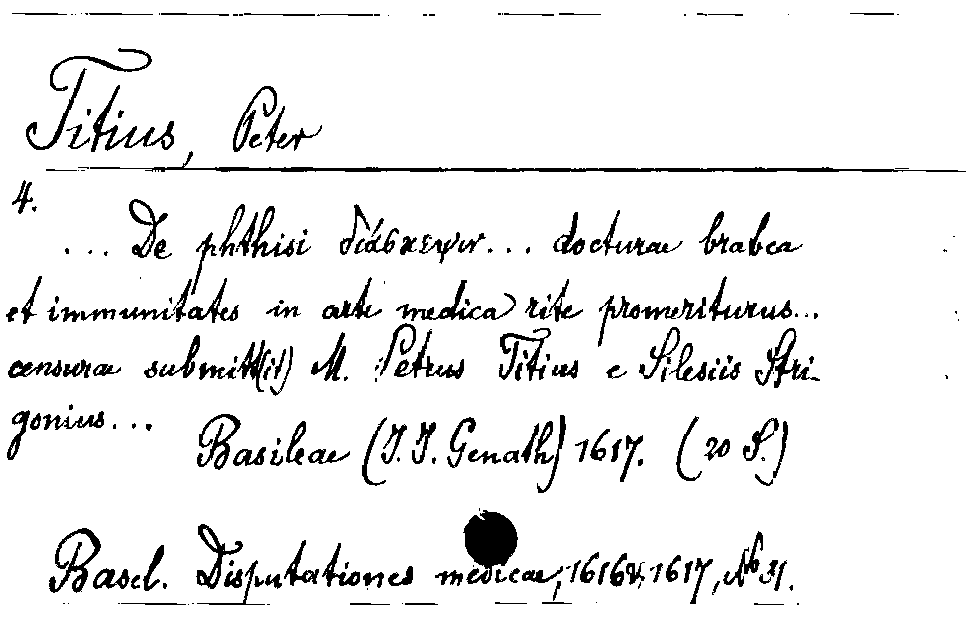 Titius, Peter
4.
... De phthisi διάσκεψιν... docturae brabea
et immunitates in arte medica rite promeriturus...
censurae submitt(it) M. Petrus Titius e Silesiis Stri-
gonius...
Basileae (J. J. Genath) 1617. (20 S.)
Basel. Disputationes medicae, 1616 1617, No 31.